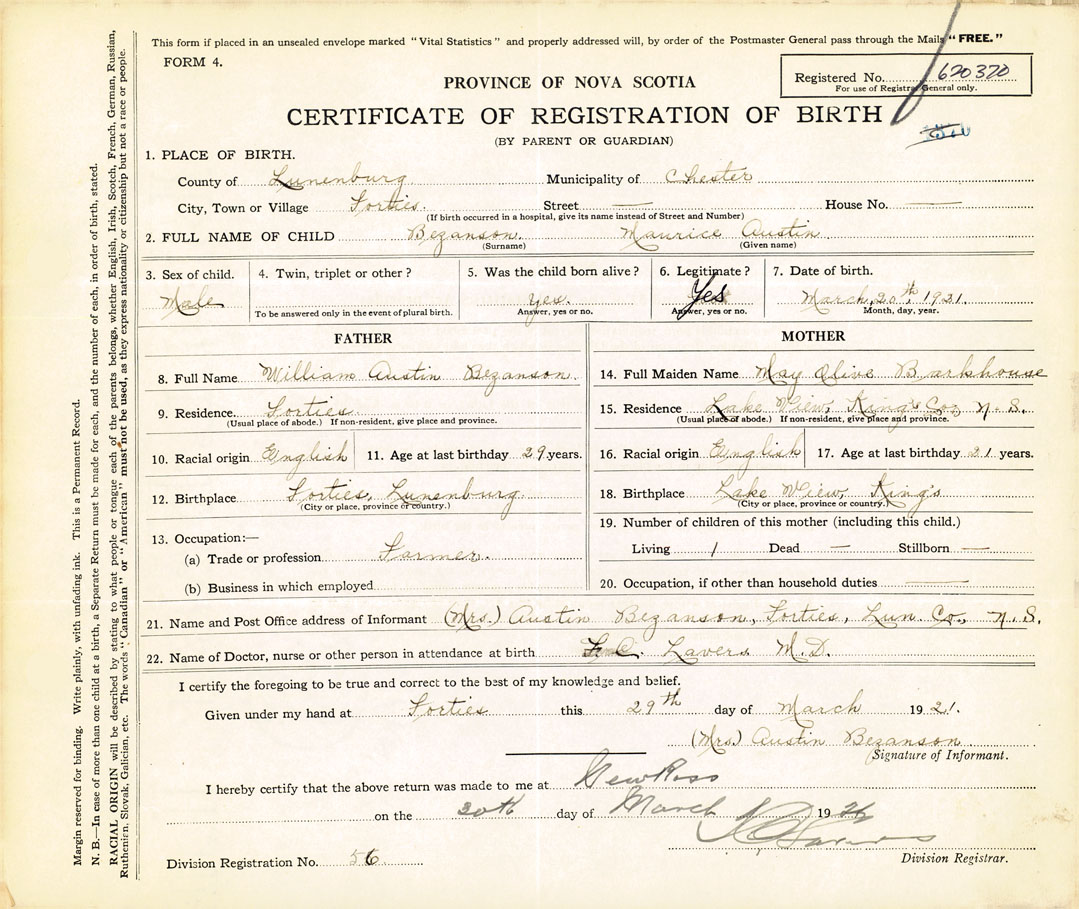 This form if placed in an unsealed envelope marked "Vital Statistics" and properly addressed will, by order of the Postmaster General pass through the Mails "FREE."
FORM 4.
Registered No. 620320
For use of Registrar General only.
PROVINCE OF NOVA SCOTIA
CERTIFICATE OF REGISTRATION OF BIRTH
(BY PARENT OR GUARDIAN)
1. PLACE OF BIRTH.
County of Lunenburg Municipality of Chester
City, Town or Village Forties. Street — House No. —
(If birth occurred in a hospital, give its name instead of Street and Number)
2. FULL NAME OF CHILD Bezanson. Maurice Austin
(Surname) (Given name)
3. Sex of child. 4. Twin, triplet or other? 5. Was the child born alive? 6. Legitimate? 7. Date of birth.
Male Yes. Yes March, 20th, 1921.
To be answered only in the event of plural birth. Answer, yes or no. Answer, yes or no. Month, day, year.
FATHER
8. Full Name William Austin Bezanson.
9. Residence. Forties
(Usual place of abode.) If non-resident, give place and province.
10. Racial origin English 11. Age at last birthday 29 years.
12. Birthplace Forties, Lunenburg.
(City or place, province or country.)
13. Occupation:—
(a) Trade or profession Farmer.
(b) Business in which employed
MOTHER
14. Full Maiden Name May Olive Barkhouse
15. Residence Lake View, King's Co, N.S.
(Usual place of abode.) If non-resident, give place and province.
16. Racial origin English 17. Age at last birthday 21 years.
18. Birthplace Lake View, King's
(City or place, province or country.)
19. Number of children of this mother (including this child.)
Living 1 Dead — Stillborn —
20. Occupation, if other than household duties —
21. Name and Post Office address of Informant (Mrs.) Austin Bezanson, Forties, Lun. Co., N.S.
22. Name of Doctor, nurse or other person in attendance at birth C. Lavers M.D.
I certify the foregoing to be true and correct to the best of my knowledge and belief.
Given under my hand at Forties this 29th day of March 1921.
(Mrs.) Austin Bezanson.
Signature of Informant.
I hereby certify that the above return was made to me at New Ross
on the 30th day of March 19
Division Registration No. 56
Division Registrar.
Margin reserved for binding. Write plainly, with unfading ink. This is a Permanent Record.
N. B.—In case of more than one child at a birth, a Separate Return must be made for each, and the number of each, in order of birth, stated.
RACIAL ORIGIN will be described by stating to what people or tongue each of the parents belongs, whether English, Irish, Scotch, French, German, Russian,
Ruthenian, Slovak, Galician, etc. The words "Canadian" or "American" must not be used, as they express nationality or citizenship but not a race or people.